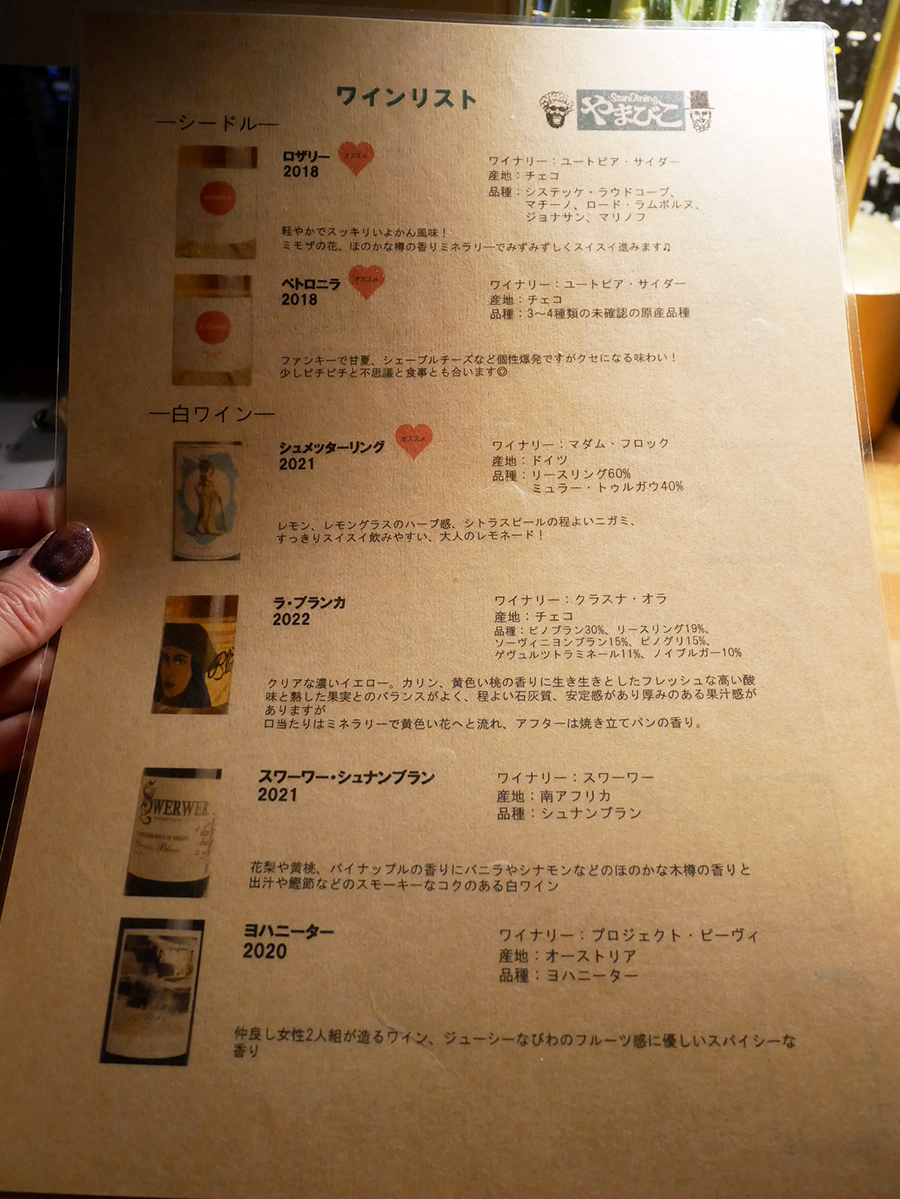 ワインリスト
StanDining
やまびこ
―シードル―
ロザリー
オススメ
2018
ワイナリー：ユートピア・サイダー
産地：チェコ
品種：システッケ・ラウドコープ、
マチーノ、ロード・ラムボルヌ、
ジョナサン、マリノフ
軽やかでスッキリいよかん風味！
ミモザの花、ほのかな樽の香りミネラリーでみずみずしくスイスイ進みます♫
ペトロニラ
オススメ
2018
ワイナリー：ユートピア・サイダー
産地：チェコ
品種：3～4種類の未確認の原産品種
ファンキーで甘夏、シェーブルチーズなど個性爆発ですがクセになる味わい！
少しピチピチと不思議と食事とも合います◎
―白ワイン―
シュメッターリング
オススメ
2021
ワイナリー：マダム・フロック
産地：ドイツ
品種：リースリング60%
ミュラー・トゥルガウ40%
レモン、レモングラスのハーブ感、シトラスピールの程よいニガミ、
すっきりスイスイ飲みやすい、大人のレモネード！
ラ・ブランカ
2022
ワイナリー：クラスナ・オラ
産地：チェコ
品種：ピノブラン30%、リースリング19%、
ソーヴィニヨンブラン15%、ピノグリ15%、
ゲヴュルツトラミネール11%、ノイブルガー10%
クリアな濃いイエロー。カリン、黄色い桃の香りに生き生きとしたフレッシュな高い酸
味と熟した果実とのバランスがよく、程よい石灰質、安定感があり厚みのある果汁感が
ありますが
口当たりはミネラリーで黄色い花へと流れ、アフターは焼き立てパンの香り。
スワーワー・シュナンブラン
2021
ワイナリー：スワーワー
産地：南アフリカ
品種：シュナンブラン
SWERWER
花梨や黄桃、パイナップルの香りにバニラやシナモンなどのほのかな木樽の香りと
出汁や鰹節などのスモーキーなコクのある白ワイン
ヨハニーター
2020
ワイナリー：プロジェクト・ピーヴィ
産地：オーストリア
品種：ヨハニーター
仲良し女性2人組が造るワイン、ジューシーなびわのフルーツ感に優しいスパイシーな
香り